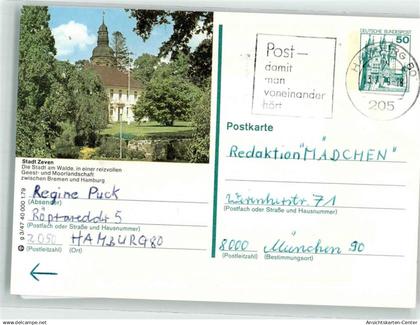 DEUTSCHE BUNDESPOST
50
Post-
damit
man
voneinander
hört
205
Postkarte
Stadt Zeven
Die Stadt am Walde, in einer reizvollen
Geest- und Moorlandschaft
zwischen Bremen und Hamburg
g 3/47 40 000 1.79
Redaktion "MÄDCHEN"
71
(Postfach oder Straße und Hausnummer)
8000 München 90
(Postleitzahl) (Bestimmungsort)
Regine Puck
(Absender)
5
(Postfach oder Straße und Hausnummer)
2050 HAMBURG 80
(Postleitzahl) (Ort)
www.Ansichtskarten-Center.de